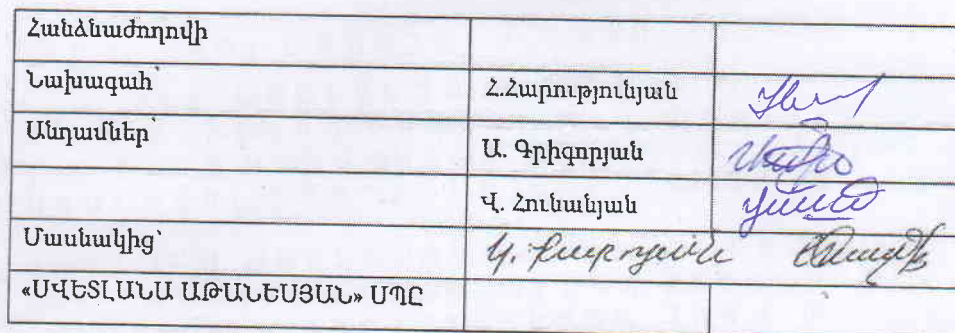 Հանձնաժողովի
Նախագահ՝ Հ.Հարությունյան
Անդամներ՝ Ա. Գրիգորյան
Վ. Հունանյան
Մասնակից՝
«ՍՎԵՏԼԱՆԱ ԱԹԱՆԵՍՅԱՆ» ՍՊԸ